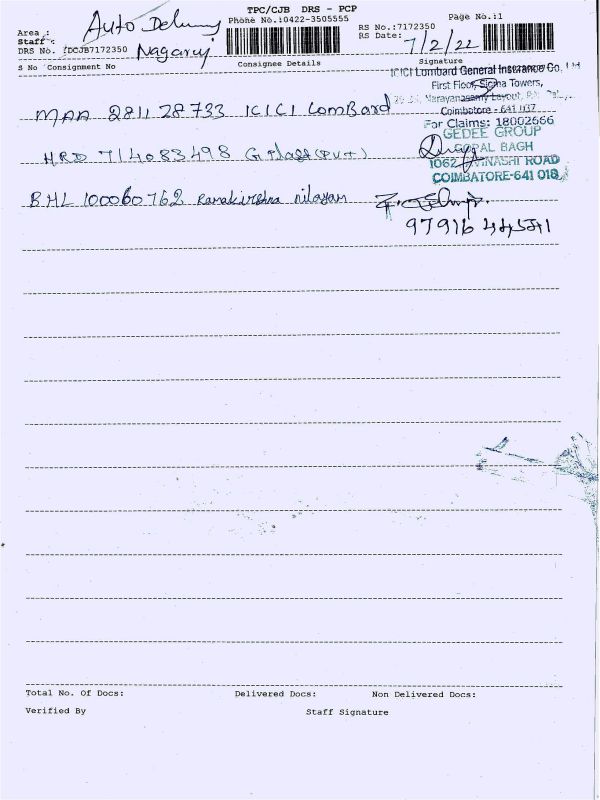 TPC/CJB DRS - PCP
Phone No.:0422-3505555
RS No.:7172350 Page No.:1
Area : Auto
Staff : Nagaraj
RS Date: 7/2/22
DRS No. :DCJB7172350
S No Consignment No Consignee Details Signature
ICICI Lombard General Insurance Co. Ltd
First Floor, Towers,
Narayanasamy Layout,
Coimbatore - 641 037
For Claims: 18002666
MAA 281128733 ICICI LomBard
GEDEE GROUP
GOPAL BAGH
1062, AVINASHI ROAD
COIMBATORE-641 018
HRD 714083498
BHL 100060762 Ramakirshna nilayam
97916 44541
Total No. Of Docs: Delivered Docs: Non Delivered Docs:
Verified By Staff Signature